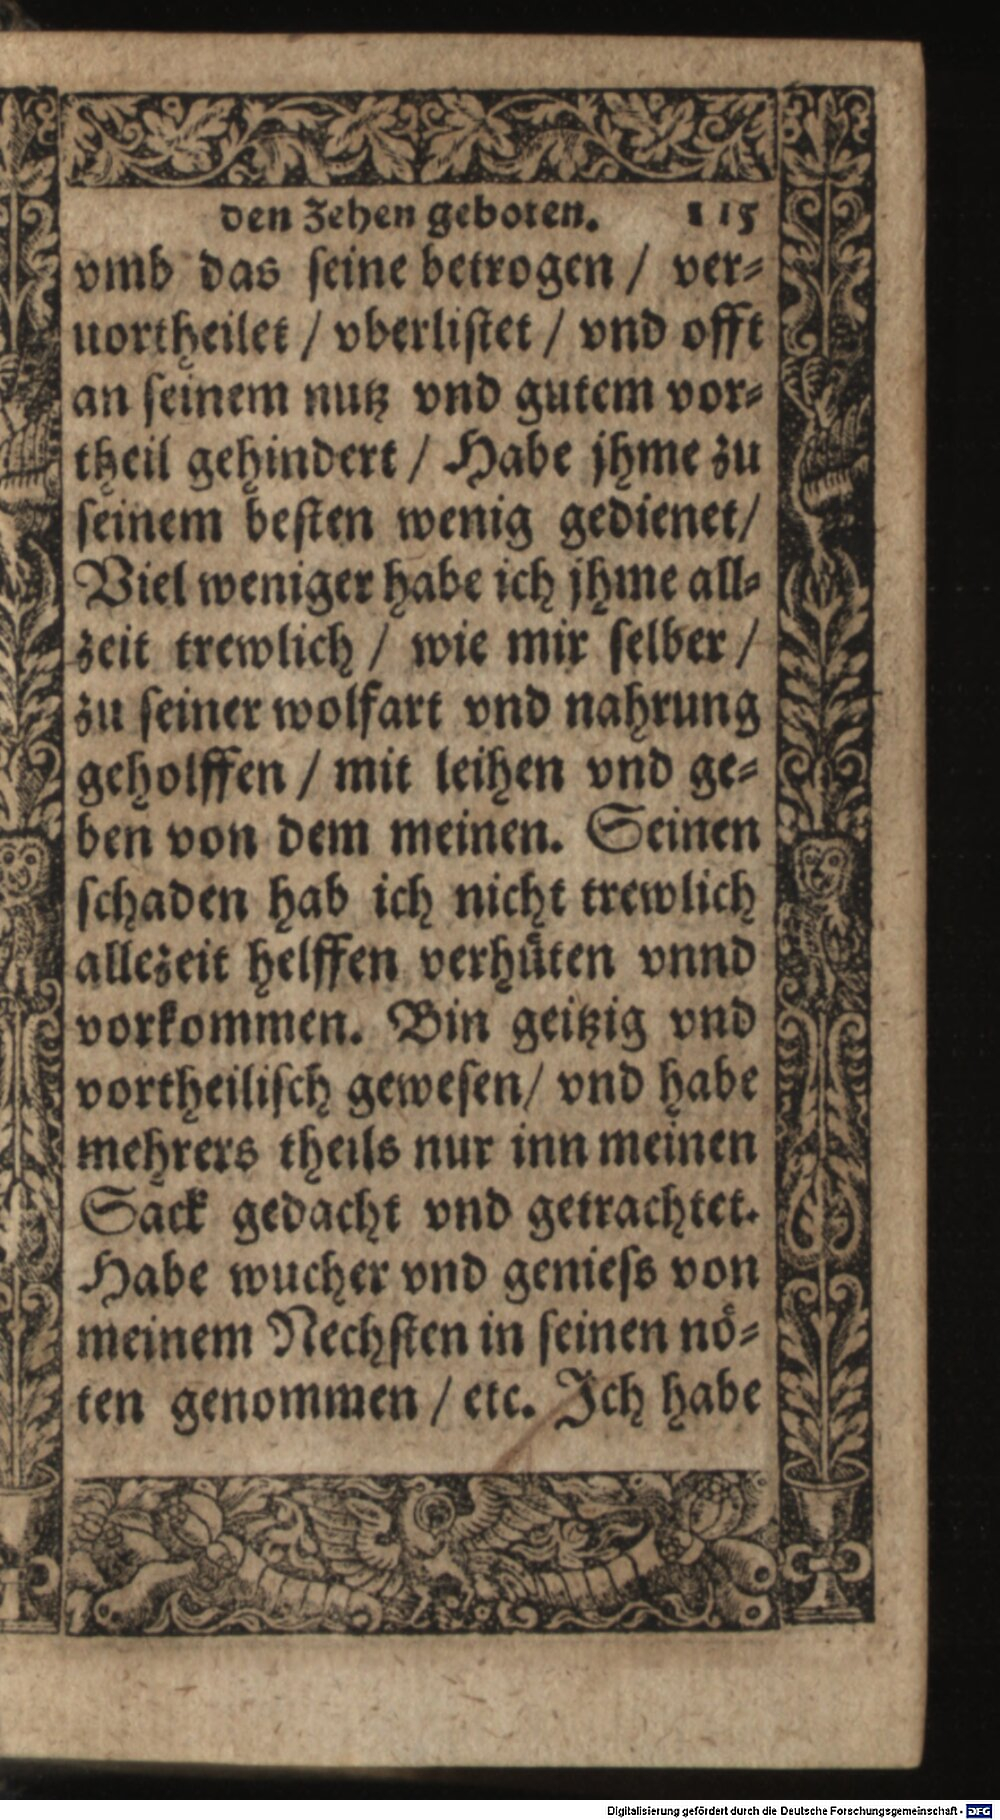 den Zehen geboten. 115
vmb das ſeine betrogen / ver⸗
uortheilet / vberliſtet / vnd offt
an ſeinem nutz vnd gutem vor⸗
theil gehindert / Habe jhme zu
ſeinem beſten wenig gedienet /
Viel weniger habe ich jhme all⸗
zeit trewlich / wie mir ſelber /
zu ſeiner wolfart vnd nahrung
geholffen / mit leihen vnd ge⸗
ben von dem meinen. Seinen
ſchaden hab ich nicht trewlich
allezeit helffen verhuͤten vnnd
vorkommen. Bin geitzig vnd
vortheiliſch geweſen / vnd habe
mehrers theils nur inn meinen
Sack gedacht vnd getrachtet.
Habe wucher vnd genieſs von
meinem Nechſten in ſeinen noͤ⸗
ten genommen / etc. Jch habe
Digitalisierung gefördert durch die Deutsche Forschungsgemeinschaft - DFG